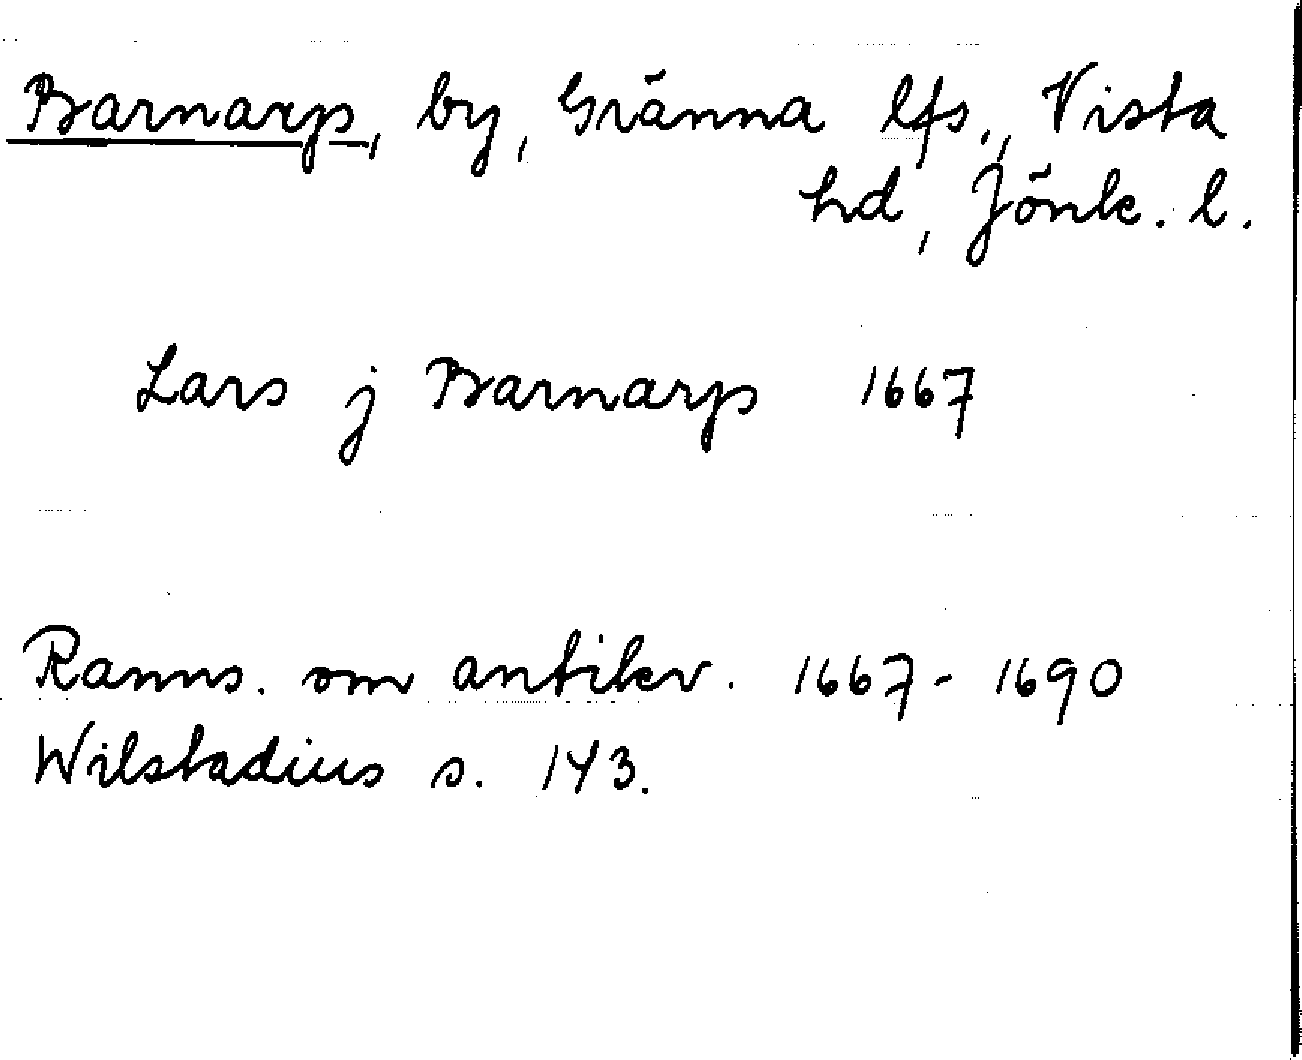 Barnarp, by, Gränna lfs., Vista
hd, Jönk. l.
Lars j Barnarp 1667
Ranns. om antikv. 1667-1690
Wilstadius s. 143.